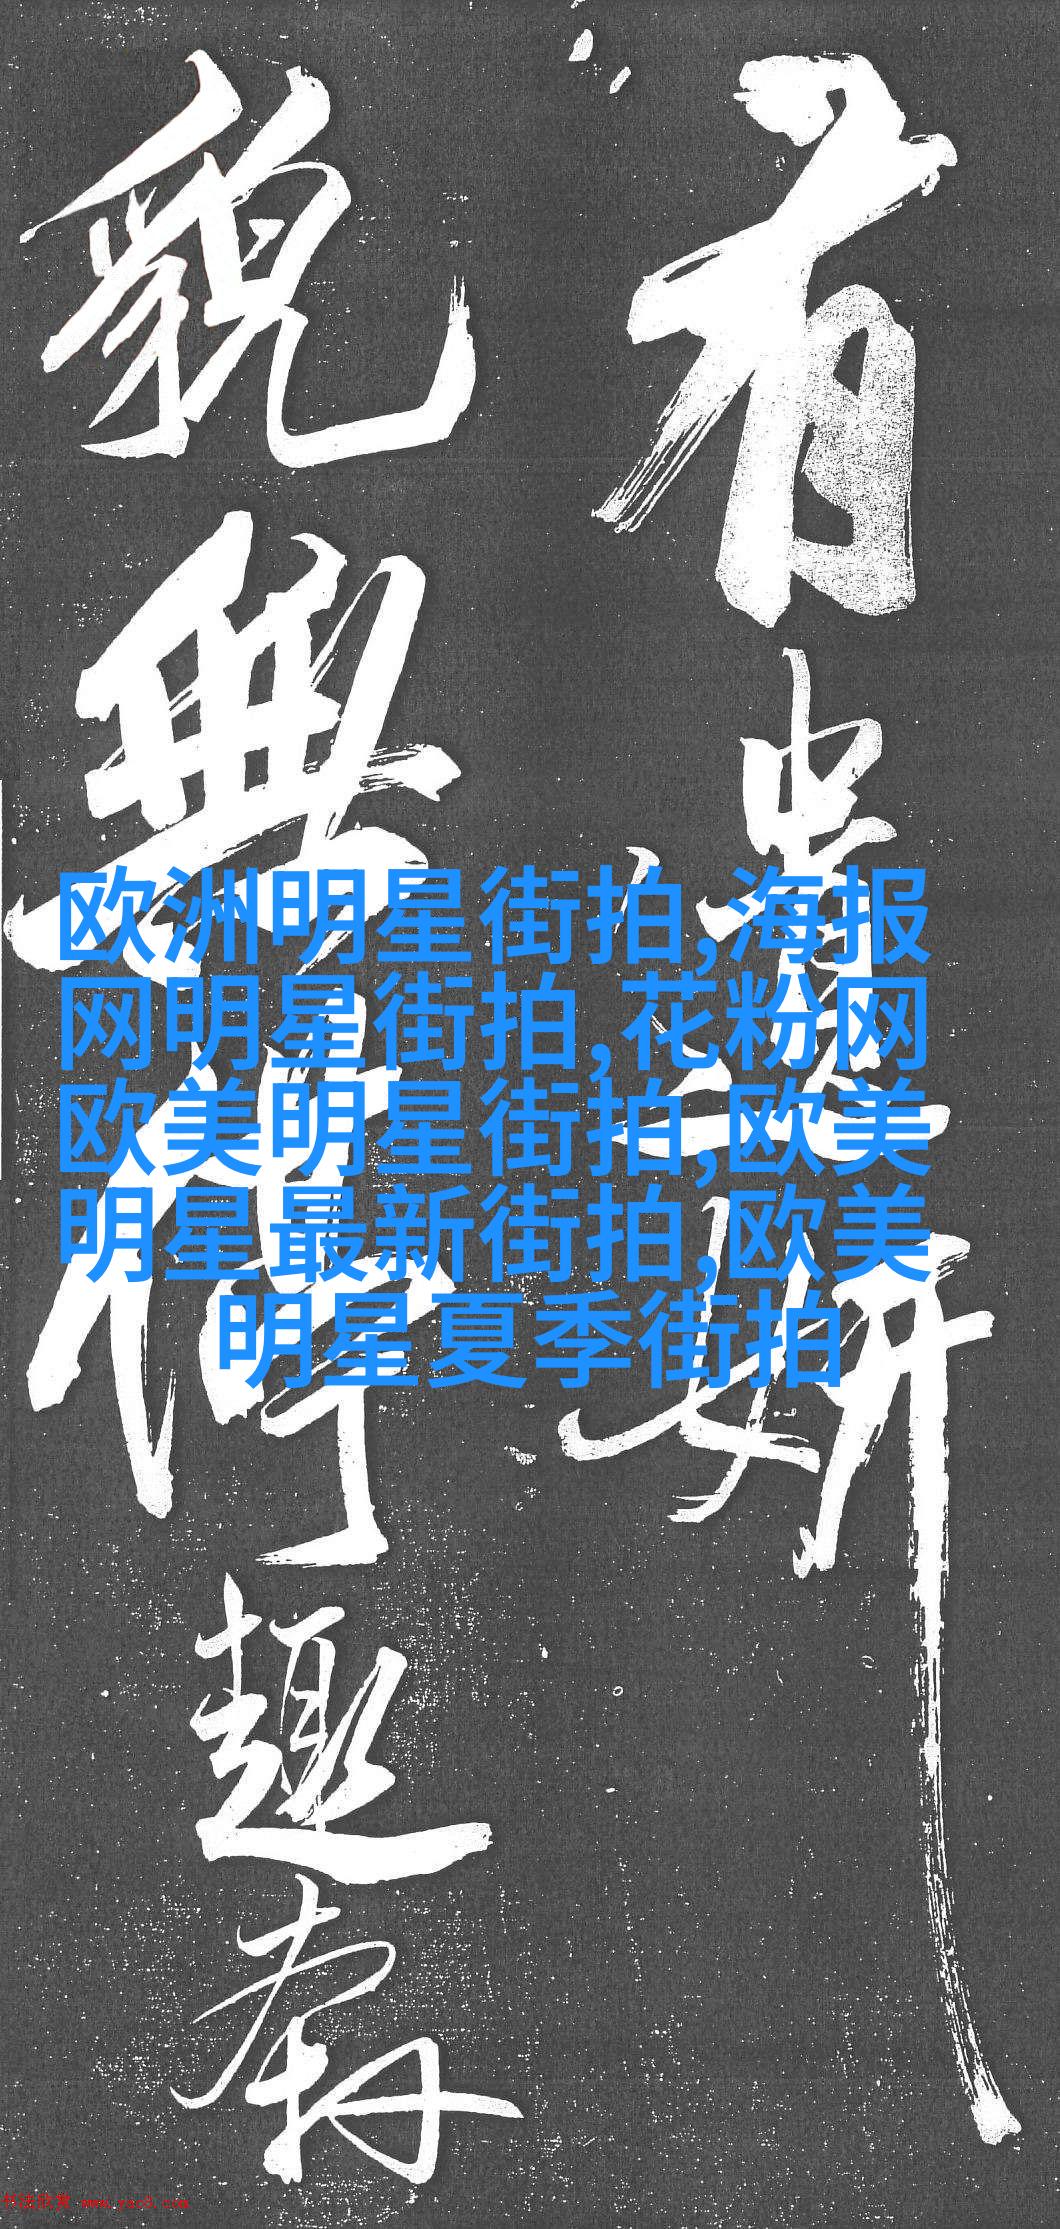 有遺妍
貌無停趣奔
欧洲明星街拍,海报
网明星街拍,花粉网
欧美明星街拍,欧美
明星最新街拍,欧美
明星夏季街拍
书法欣赏 www.yac8.com